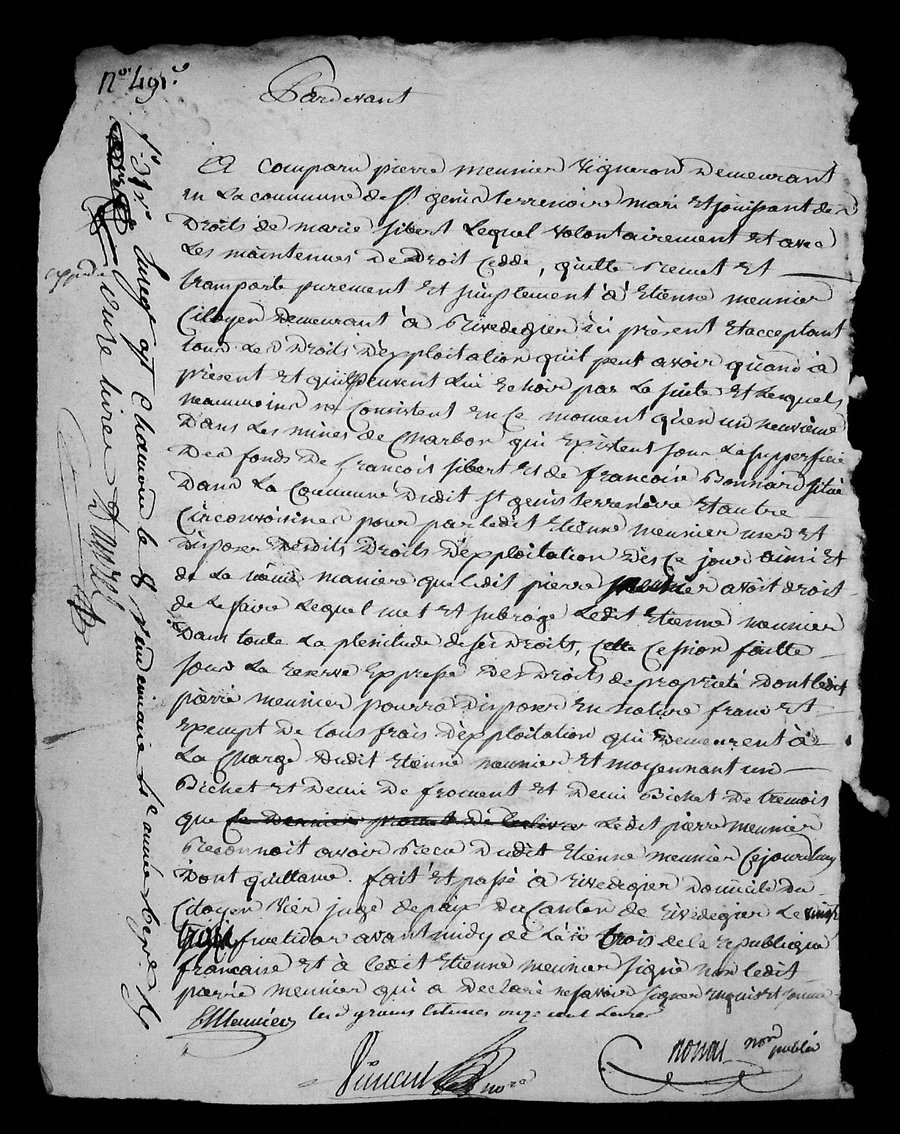 Pardevant
A Comparu pierre meunier Vigneron Demeurant
en La commune de St genis terrenoire mari Et jouissant des
Droits de marie sibert Lequel volontairement Et avec
Les maintenues De Droit Cedde, quitte Remet Et
transporte purement Et simplement à Etienne meunier
Citoyen Demeurant à Rivedegier ici présent Et acceptant
tous Les Droits D'exploitation qu'il peut avoir quand à
présent Et qui peuvent Lui Echoir par La suite Et Lesquels
neanmoins ne Consistent En Ce moment qu'en un neuvième
Dans Les mines de Charbon qui Existent sous La supperficie
Des fonds De francois sibert Et de francois Bonnard situé
Dans La Commune Dudit St genis terrenoire Et autre
Circonvoisines pour par ledit Etienne meunier user Et
Disposer Desdits Droits D'exploitation Dès Ce jour ainsi Et
de La même maniere que Ledit pierre meunier avoit droit
de Le faire Lequel met Et subroge Ledit Etienne meunier
Dans toute La plenitude de ses Droits, Cette Cession faitte
sous La reserve Expresse Des Droits de propriété Dont ledit
pierre meunier pourra Disposer En nature franc Et
Exempt De tous frais D'exploitation qui Demeurent à
La Charge Dudit Etienne meunier Et moyennant un
Bichet Et Demi De froment Et Demi Bichet De tremois
que Ledit pierre meunier
Reconnoit avoir Recu Dudit Etienne meunier Cejourdhuy
Dont quittance. fait Et passé à Rivedegier Domicile Du
Citoyen juge de paix Du Canton de Rivedegier Le vingt
trois fructidor avant midy de L'an trois de la République
francaise Et à ledit Etienne meunier signé non ledit
pierre meunier qui a Declaré ne savoir signer Enquis Et sommé
EMeunier
not public
Chamond le 8 vendemiaire année